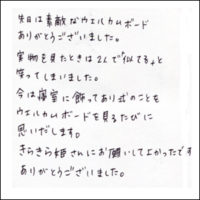 先日は素敵なウェルカムボード
ありがとうございました。
実物を見たときは2人で「似てる。」と
笑ってしまいました。
今は寝室に飾ってあり式のことを
ウェルカムボードを見るたびに
思いだします。
きらきら姫さんにお願いしてよかったです
ありがとうございました。